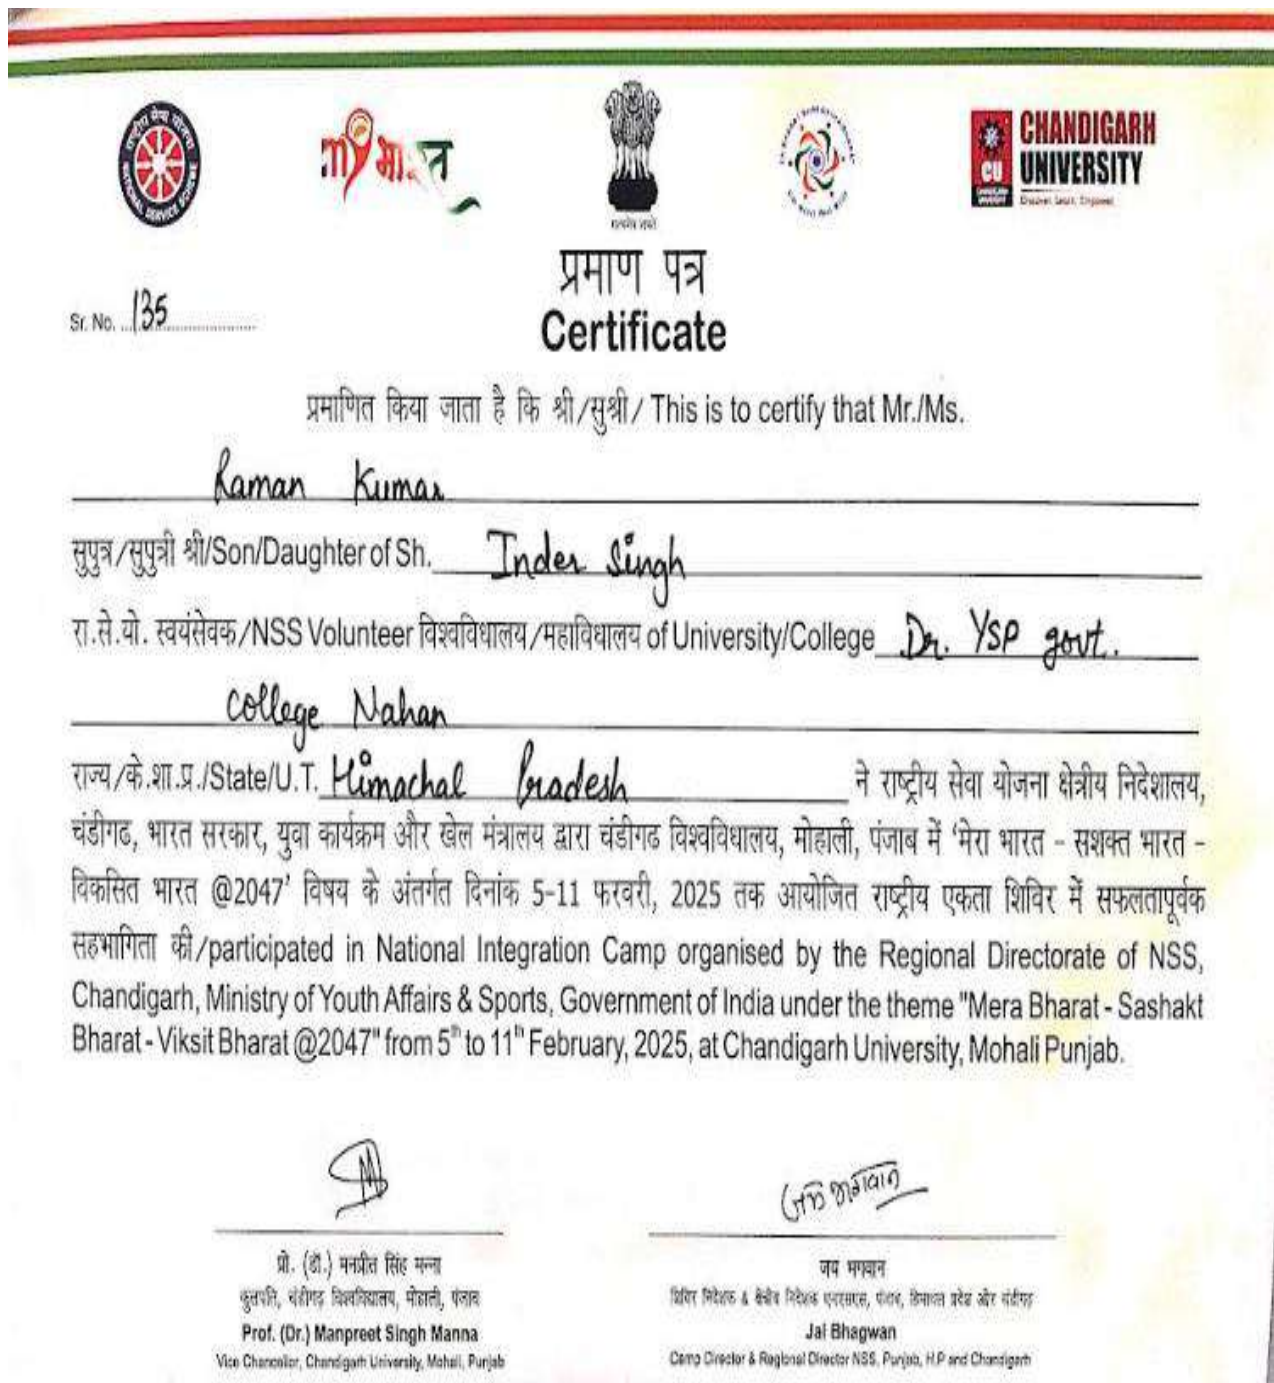 राष्ट्रीय सेवा योजना
NATIONAL SERVICE SCHEME
भारत
सत्यमेव जयते
CHANDIGARH
UNIVERSITY
Discover. Learn. Empower.
CU
CHANDIGARH
UNIVERSITY
प्रमाण पत्र
Sr. No. 135
Certificate
प्रमाणित किया जाता है कि श्री/सुश्री/ This is to certify that Mr./Ms.
Raman Kumar
सुपुत्र/सुपुत्री श्री/Son/Daughter of Sh. Inder Singh
रा.से.यो. स्वयंसेवक/NSS Volunteer विश्वविधालय/महाविधालय of University/College Dr. YSP govt.
College Nahan
राज्य/के.शा.प्र./State/U.T. Himachal Pradesh ने राष्ट्रीय सेवा योजना क्षेत्रीय निदेशालय,
चंडीगढ, भारत सरकार, युवा कार्यक्रम और खेल मंत्रालय द्वारा चंडीगढ विश्वविधालय, मोहाली, पंजाब में 'मेरा भारत - सशक्त भारत -
विकसित भारत @2047' विषय के अंतर्गत दिनांक 5-11 फरवरी, 2025 तक आयोजित राष्ट्रीय एकता शिविर में सफलतापूर्वक
सहभागिता की/participated in National Integration Camp organised by the Regional Directorate of NSS,
Chandigarh, Ministry of Youth Affairs & Sports, Government of India under the theme "Mera Bharat - Sashakt
Bharat - Viksit Bharat @2047" from 5th to 11th February, 2025, at Chandigarh University, Mohali Punjab.
जय भगवान
प्रो. (डॉ.) मनप्रीत सिंह मन्ना
कुलपति, चंडीगढ़ विश्वविद्यालय, मोहाली, पंजाब
Prof. (Dr.) Manpreet Singh Manna
Vice Chancellor, Chandigarh University, Mohali, Punjab
जय भगवान
शिविर निदेशक & क्षेत्रीय निदेशक एनएसएस, पंजाब, हिमाचल प्रदेश और चंडीगढ़
Jai Bhagwan
Camp Director & Regional Director NSS, Punjab, H.P and Chandigarh